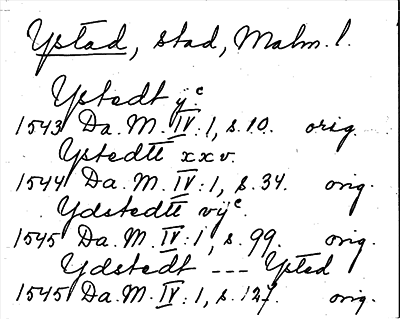 Ystad, stad, Malm. l.
Ystedt ijᶜ.
1543 Da. M. IV: 1, s. 10. orig.
Ystedtt xxv.
1544 Da. M. IV: 1, s. 34. orig.
Ydstedtt vijᶜ.
1545 Da. M. IV: 1, s. 99. orig.
Ydstedt --- Ysted
1545 Da. M. IV: 1, s. 127. orig.